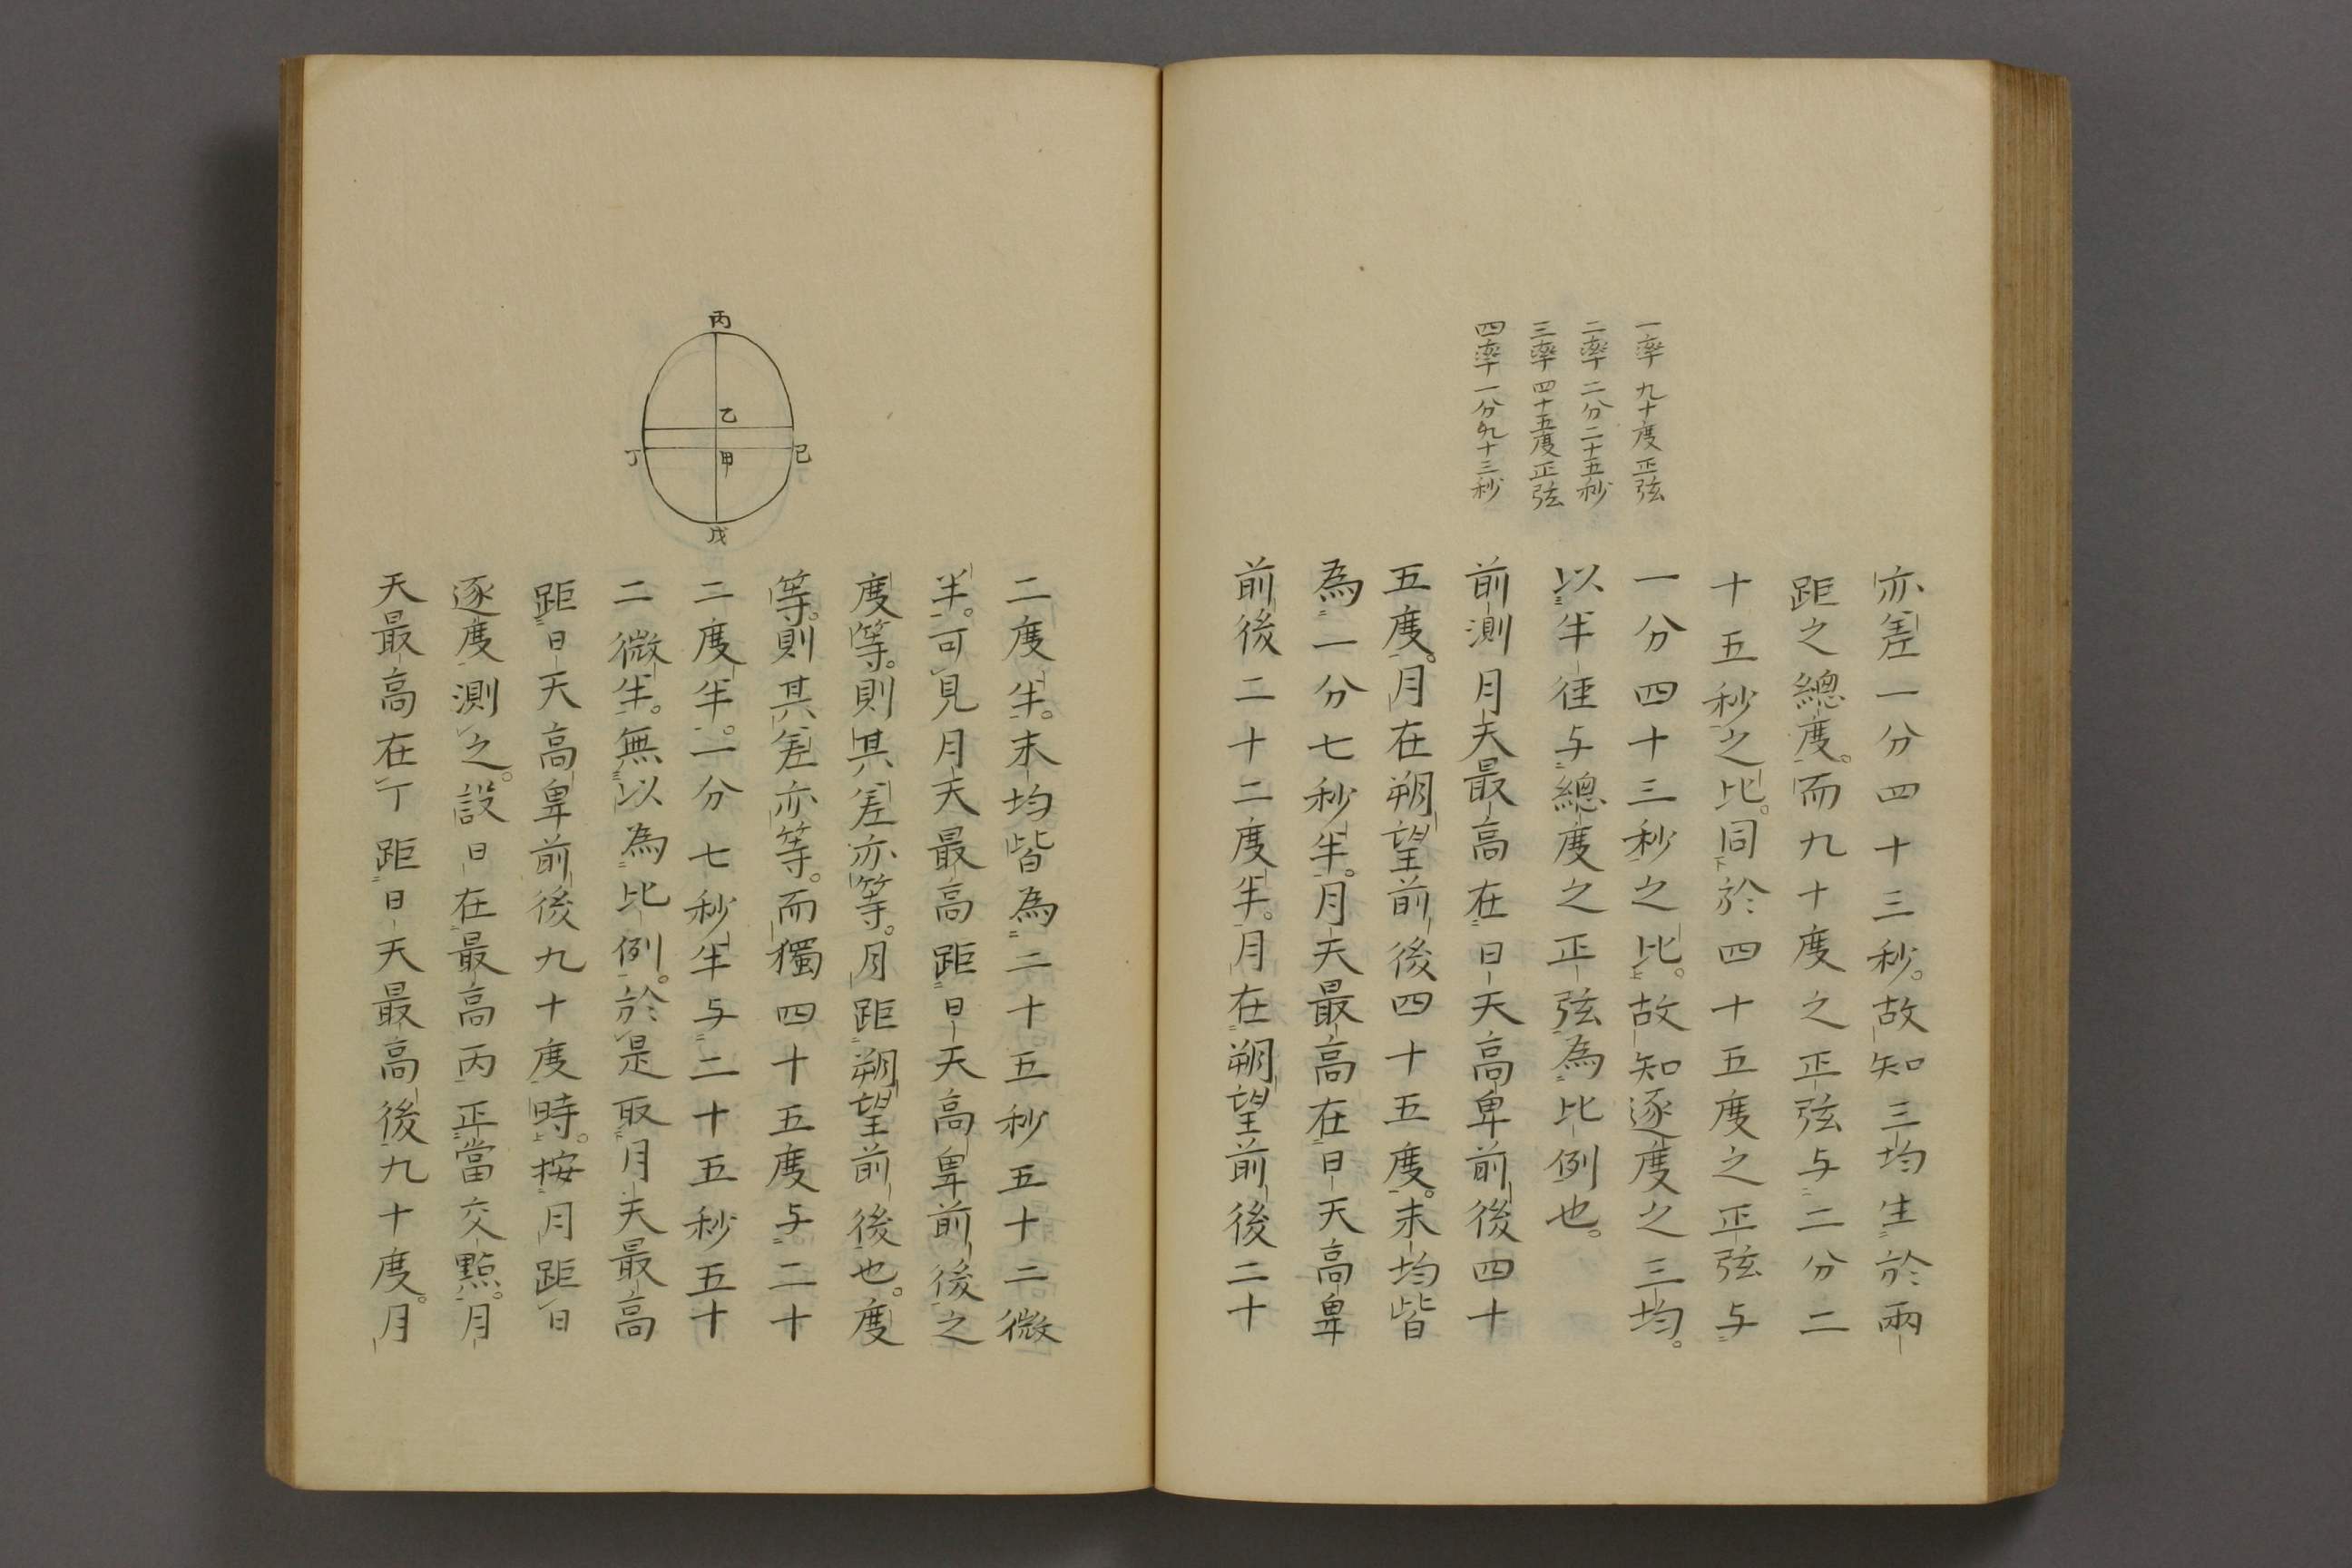 一率 九十度正弦
二率 二分二十五秒
三率 四十五度正弦
四率 一分四十三秒
亦差一分四十三秒。故知三均生於兩
距之總度。而九十度之正弦与二分二
十五秒之比。同於四十五度之正弦与
一分四十三秒之比。故知逐度之三均。
以半徑与總度之正弦為比例也。
前測月天最高在日天高卑前後四十
五度。月在朔望前後四十五度。末均皆
為一分七秒半。月天最高在日天高卑
前後二十二度半。月在朔望前後二十
丙
乙
丁
甲
己
戊
二度半。末均皆為二十五秒五十二微
半。可見月天最高距日天高卑前後之
度等。則其差亦等。月距朔望前後也。度
等。則其差亦等。而獨四十五度与二十
二度半。一分七秒半与二十五秒五十
二微半。無以為比例。於是取月天最高
距日天高卑前後九十度時。按月距日
逐度測之。設日在最高丙正當交點。月
天最高在丁距日天最高後九十度。月